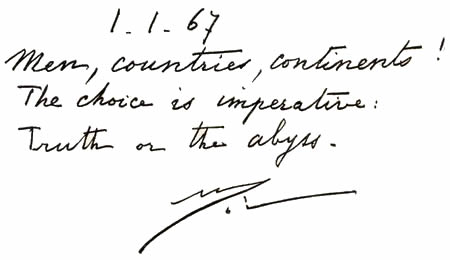 1.1.67
Men, countries, continents!
The choice is imperative:
Truth or the abyss.